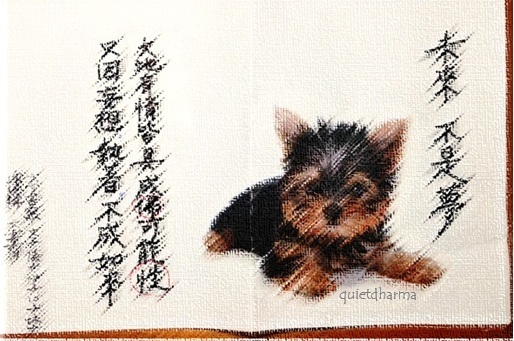 未來不是夢
大地有情皆具成佛可能性
只因妄想執着不成如來
quietdharma